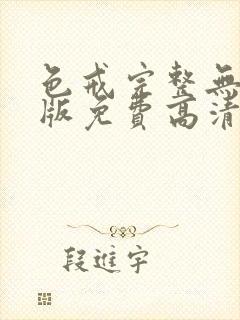 色戒完整無
版免費高清
段進宇